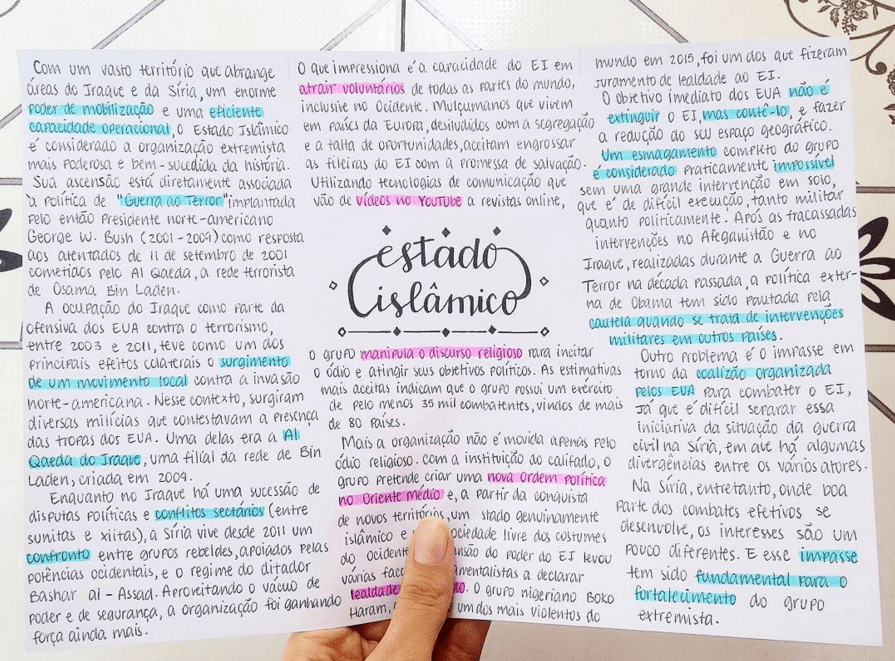 Com um vasto território que abrange
áreas do Iraque e da Síria, um enorme
poder de mobilização e uma eficiente
capacidade operacional, o Estado Islâmico
é considerado a organização extremista
mais poderosa e bem-sucedida da história.
Sua ascensão está diretamente associada
à política de "Guerra ao Terror" implantada
pelo então Presidente norte-americano
George W. Bush (2001-2009) como resposta
aos atentados de 11 de setembro de 2001
cometidos pelo Al Qaeda, a rede terrorista
de Osama Bin Laden.
A ocupação do Iraque como parte da
ofensiva dos EUA contra o terrorismo,
entre 2003 e 2011, teve como um dos
principais efeitos colaterais o surgimento
de um movimento local contra a invasão
norte-americana. Nesse contexto, surgiram
diversas milícias que contestavam a presença
das tropas dos EUA. Uma delas era a Al
Qaeda do Iraque, uma filial da rede de Bin
Laden, criada em 2004.
Enquanto no Iraque há uma sucessão de
disputas políticas e conflitos sectários (entre
sunitas e xiitas), a Síria vive desde 2011 um
confronto entre grupos rebeldes, apoiados pelas
potências ocidentais, e o regime do ditador
Bashar al-Assad. Aproveitando o vácuo de
poder e de segurança, a organização foi ganhando
força ainda mais.
O que impressiona é a capacidade do EI em
atrair voluntários de todas as partes do mundo,
inclusive no Ocidente. Mulçumanos que vivem
em países da Europa, desiludidos com a segregação
e a falta de oportunidades, aceitam engrossar
as fileiras do EI com a promessa de salvação.
Utilizando tecnologias de comunicação que
vão de vídeos no YouTube a revistas online,
estado
islâmico
o grupo manipula o discurso religioso para incitar
o ódio e atingir seus objetivos políticos. As estimativas
mais aceitas indicam que o grupo possui um exército
de pelo menos 35 mil combatentes, vindos de mais
de 80 países.
Mais a organização não é movida apenas pelo
ódio religioso. Com a instituição do califado, o
grupo pretende criar uma nova ordem política
no Oriente Médio e, a partir da conquista
de novos territórios, um stado genuinamente
islâmico e ociedade livre dos costumes
do ocidente nsão do poder do EI levou
várias fac mentalistas a declarar
lealdade no. O grupo nigeriano Boko
Haram, um dos mais violentos do
mundo em 2015, foi um dos que fizeram
juramento de lealdade ao EI.
O objetivo imediato dos EUA não é
extinguir o EI, mas contê-lo, e fazer
a redução do seu espaço geográfico.
Um esmagamento completo do grupo
é considerado praticamente impossível
sem uma grande intervenção em solo,
que é de difícil execução, tanto militar
quanto politicamente. Após as fracassadas
intervenções no Afeganistão e no
Iraque, realizadas durante a Guerra ao
Terror na década passada, a política exter-
na de Obama tem sido pautada pela
cautela quando se trata de intervenções
militares em outros países.
Outro problema é o impasse em
torno da coalizão organizada
pelos EUA para combater o EI,
já que é difícil separar essa
iniciativa da situação da guerra
civil na Síria, em que há algumas
divergências entre os vários atores.
Na Síria, entretanto, onde boa
parte dos combates efetivos se
desenvolve, os interesses são um
pouco diferentes. E esse impasse
tem sido fundamental para o
fortalecimento do grupo
extremista.